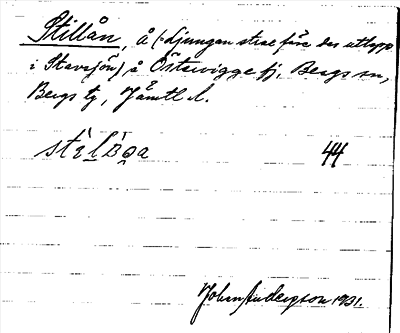 Stillån, å (= Ljungan strax före des utlopp
i Stavsjön) å Östervigge fj, Bergs sn,
Bergs tg, Jämtl. l.
44
Johan Anderson 1931.